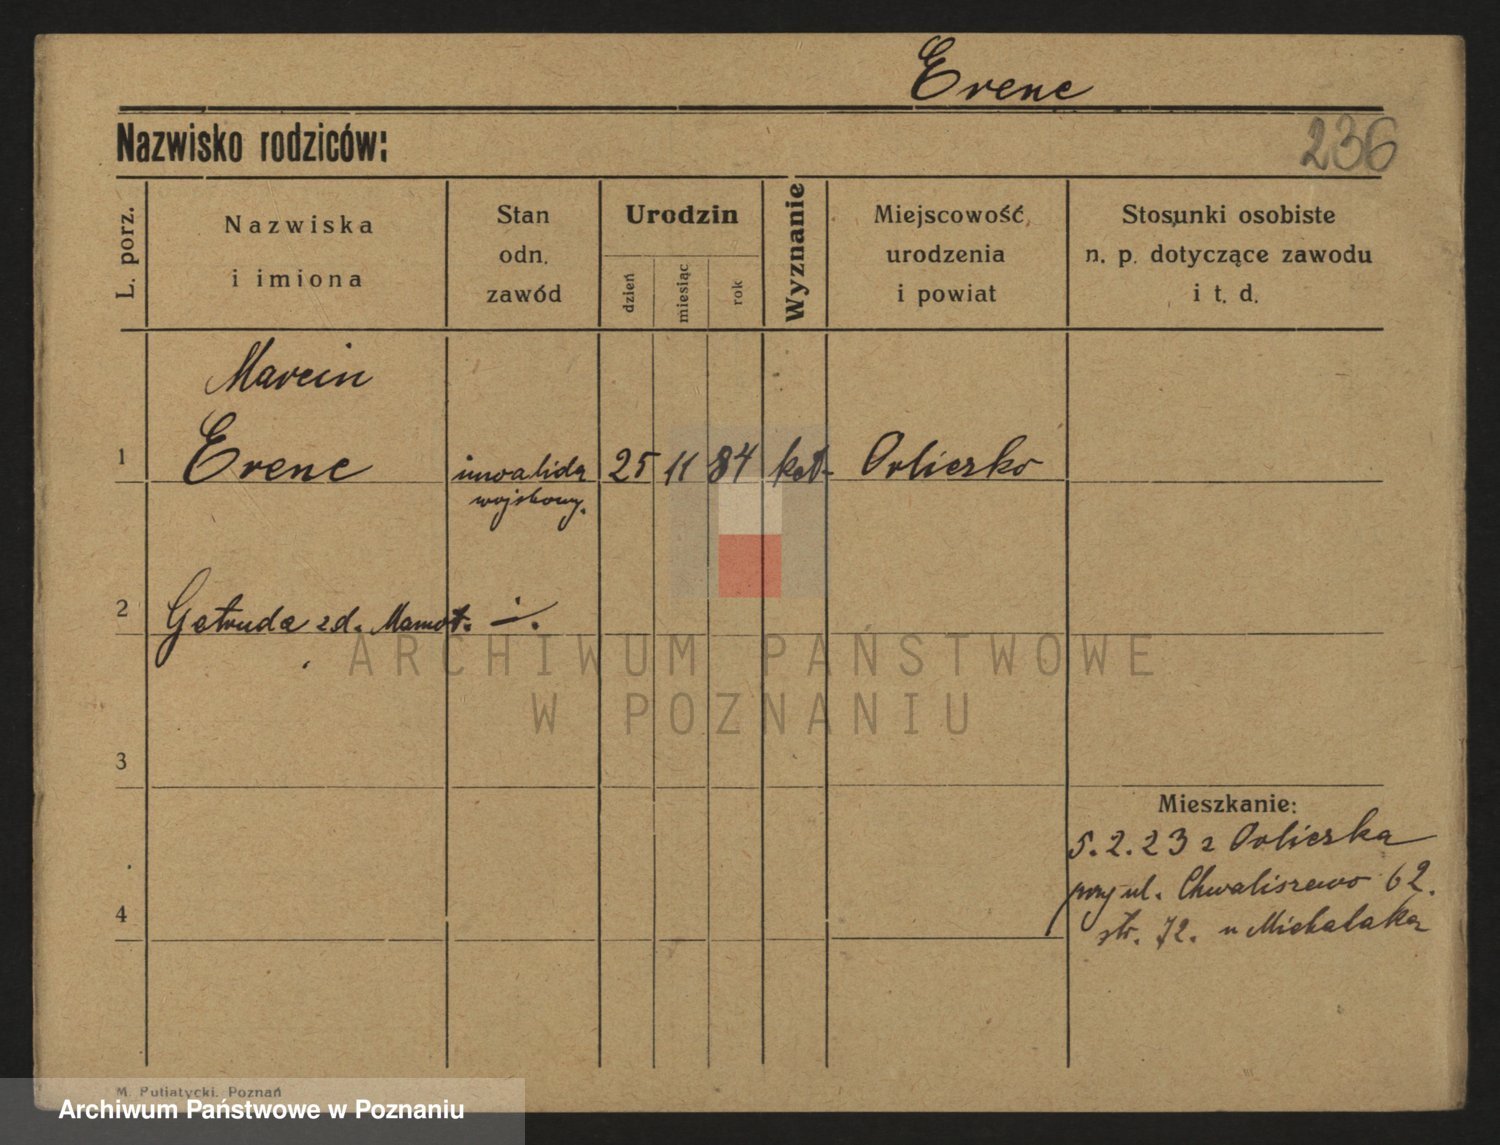 Erenc
Nazwisko rodziców:
236
L. porz.
Nazwiska
i imiona
Stan
odn.
zawód
Urodzin
dzień
miesiąc
rok
Wyznanie
Miejscowość
urodzenia
i powiat
Stosunki osobiste
n. p. dotyczące zawodu
i t. d.
Marcin
1 Erenc inwalida 25 11 84 kat. Orliczko
wojskowy.
2 Getruda zd. Mamot.
3
Mieszkanie:
5.2.23 z Orliczka
przy ul. Chwaliszewo 62.
4
str. 72. u Michalaka
ARCHIWUM PAŃSTWOWE
W POZNANIU
M. Putiatycki, Poznań
Archiwum Państwowe w Poznaniu